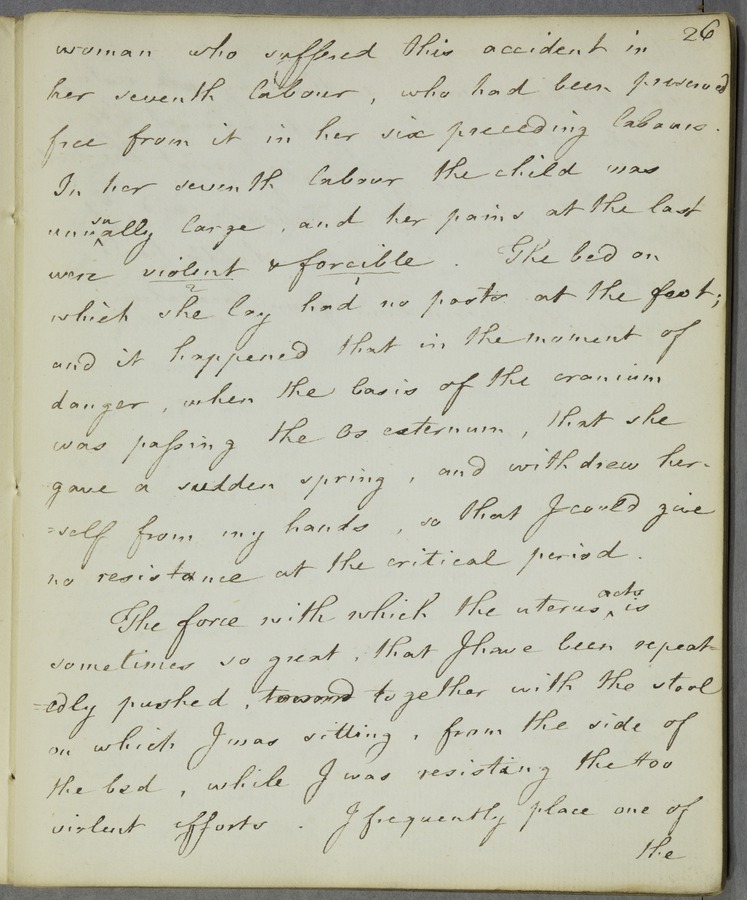 26
woman who suffered this accident in
her seventh labour, who had been preserved
free from it in her six preceding labours.
In her seventh labour the child was
unusually large, and her pains at the last
were violent & forcible. The bed on
which she lay had no posts at the feet;
and it happened that in the moment of
danger, when the basis of the cranium
was passing the Os externum, that she
gave a sudden spring, and withdrew her-
=self from my hands, so that I could give
no resistance at the critical period.
The force with which the uterus acts is
sometimes so great, that I have been repeat=
=edly pushed, toward together with the stool
on which I was sitting, from the side of
the bed, while I was resisting the too
violent efforts. I frequently place one of
the